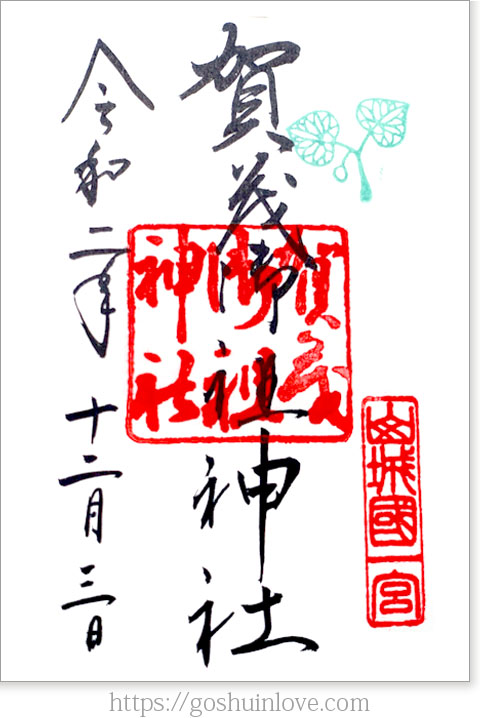 山城國一宮
賀茂御祖神社
賀茂
御祖
神社
令和二年 十二月三日
https://goshuinlove.com